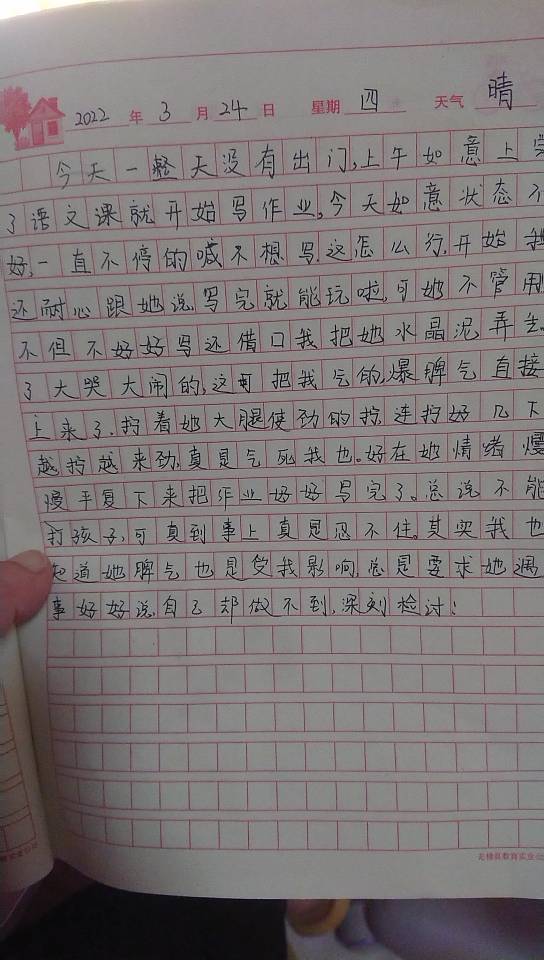 2022 年 3 月 24 日 星期 四 天气 晴
今天一整天没有出门,上午如意上完
了语文课就开始写作业,今天如意状态不
好,一直不停的喊不想写,这怎么行,开始我
还耐心跟她说写完就能玩啦,可她不管用
不但不好好写还借口我把她水晶泥弄
了大哭大闹的,这可把我气的,爆脾气直接
上来了.拧着她大腿使劲的拧,连拧好几下
越拧越来劲,真是气死我也.好在她情绪慢
慢平复下来把作业好好写完了。总说不能
打孩子,可真到事上真是忍不住。其实我也
知道她脾气也是受我影响,总是要求她遇
事好好说,自己却做不到,深刻检讨!
无棣县教育实业公